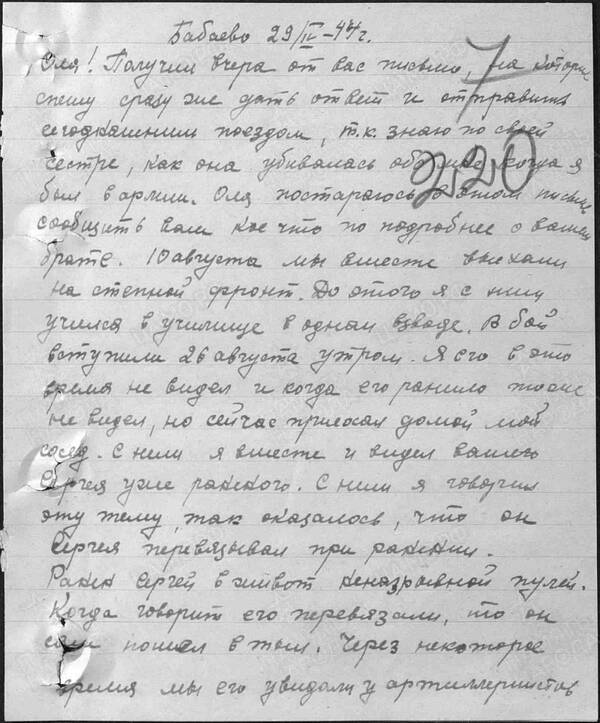 Бабаево 29/IV-44г.
Оля! Получил вчера от вас письмо, на которое
спешу сразу же дать ответ и отправить
сегодняшним поездом, т.к. знаю по своей
сестре, как она убивалась обо мне, когда я
был в армии. Оля постараюсь в этом письме
сообщить вам кое что по подробнее о вашем
брате. 10 августа мы вместе выехали
на степной фронт. До этого я с ним
учился в училище в одном взводе. В бой
вступили 26 августа утром. Я его в это
время не видел и когда его ранило тоже
не видел, но сейчас приехал домой мой
сосед. С ним я вместе и видел вашего
Сергея уже раненого. С ним я говорил
эту тему, так оказалось, что он
Сергея перевязывал при ранении.
Ранен Сергей в живот неназрывной пулей.
Когда говорит его перевязали, то он
сам пошел в тыл. Через некоторое
время мы его увидали у артиллеристов
7
220